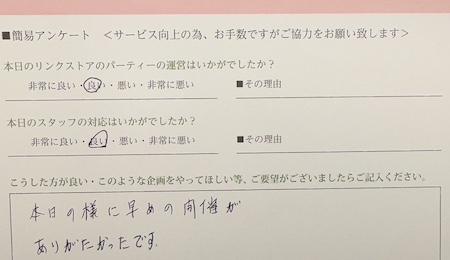 ■簡易アンケート　＜サービス向上の為、お手数ですがご協力をお願い致します＞
本日のリンクストアのパーティーの運営はいかがでしたか？
非常に良い・良い・悪い・非常に悪い　■その理由
本日のスタッフの対応はいかがでしたか？
非常に良い・良い・悪い・非常に悪い　■その理由
こうした方が良い・このような企画をやってほしい等、ご要望がございましたらご記入ください。
本日の様に早めの開催が
ありがたかったです。